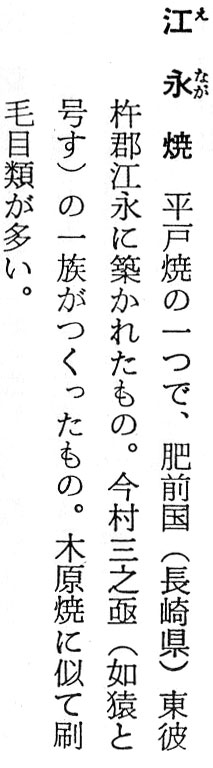 江永焼　平戸焼の一つで、肥前国（長崎県）東彼
杵郡江永に築かれたもの。今村三之亟（如猿と
号す）の一族がつくったもの。木原焼に似て刷
毛目類が多い。